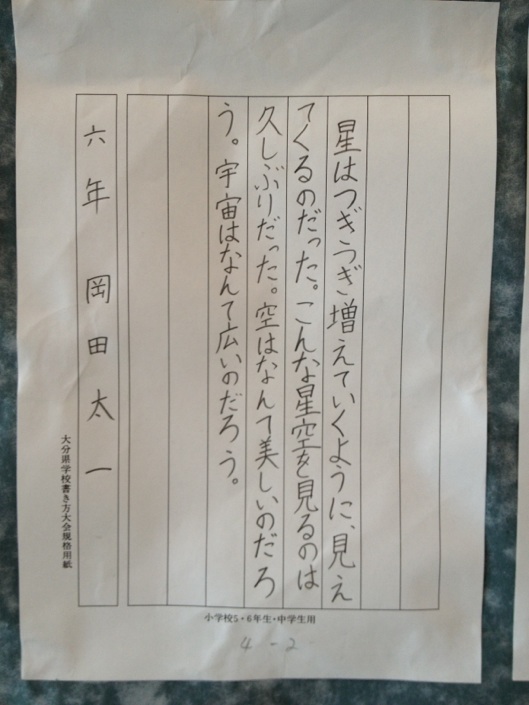 星はつぎつぎ増えていくように、見え
てくるのだった。こんな星空を見るのは
久しぶりだった。空はなんて美しいのだろ
う。宇宙はなんて広いのだろう。
六年 岡田太一
大分県学校書き方大会規格用紙
小学校5・6年生・中学生用
4-2